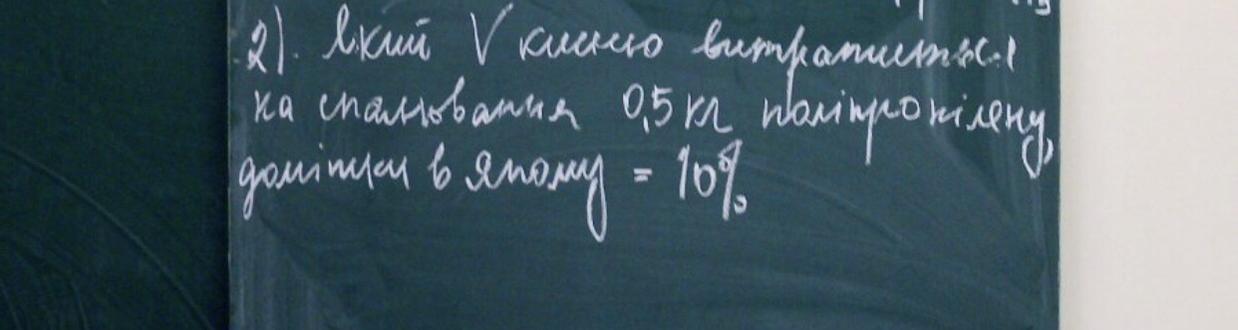 2). Який V кисню витратиться
на спалювання 0,5 кг поліпропілену,
домішки в якому = 10%